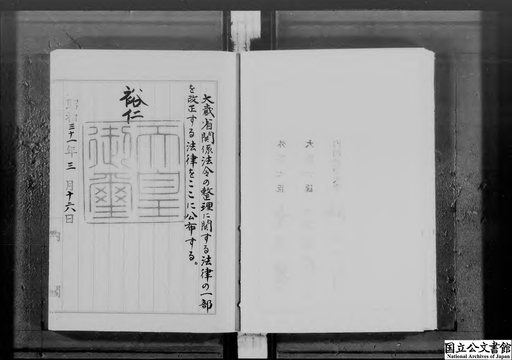 大蔵省関係法令の整理に関する法律の一部
を改正する法律をここに公布する。
裕仁
天皇
御璽
昭和三十一年三月十六日
国立公文書館
National Archives of Japan